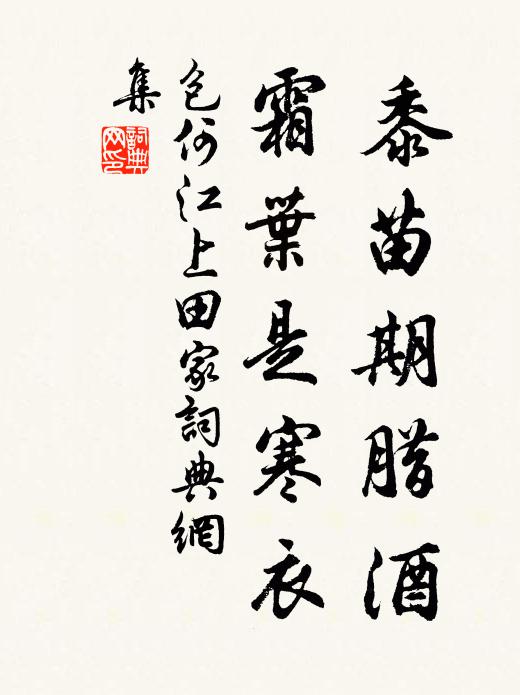 黍苗期腊酒
霜葉是寒衣
包何江上田家詞典網
集
詞典
网印